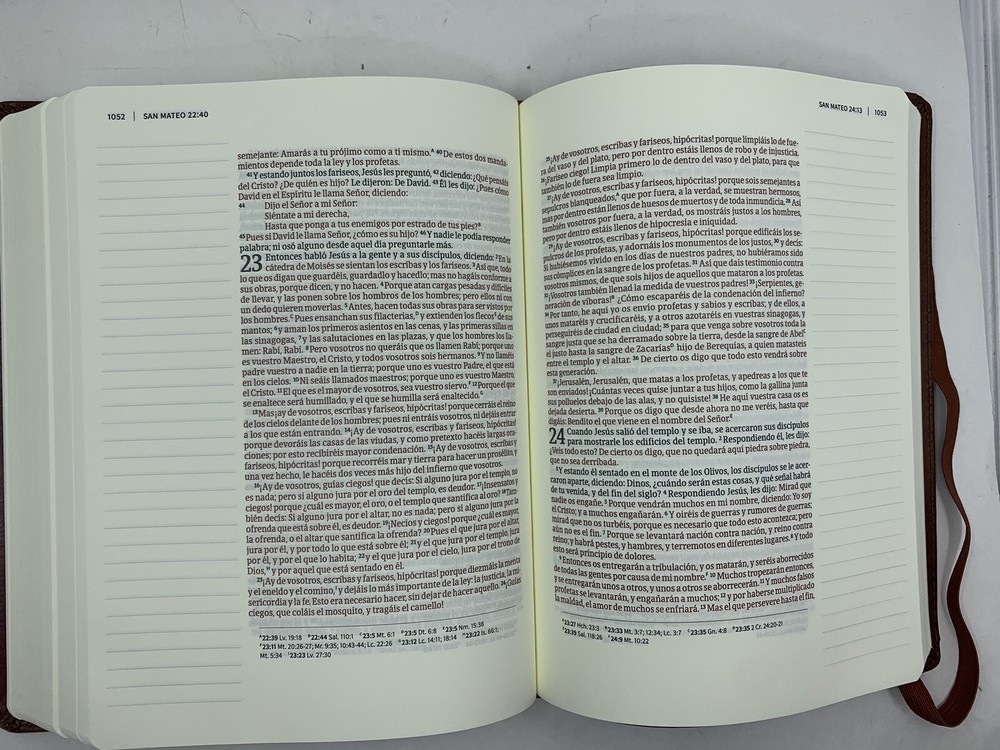 1052 | SAN MATEO 22:40
semejante: Amarás a tu prójimo como a ti mismo.ᴬ ⁴⁰ De estos dos manda-
mientos depende toda la ley y los profetas.
⁴¹ Y estando juntos los fariseos, Jesús les preguntó, ⁴² diciendo: ¿Qué pensáis
del Cristo? ¿De quién es hijo? Le dijeron: De David. ⁴³ Él les dijo: ¿Pues cómo
David en el Espíritu le llama Señor, diciendo:
⁴⁴ Dijo el Señor a mi Señor:
Siéntate a mi derecha,
Hasta que ponga a tus enemigos por estrado de tus pies?ᴮ
⁴⁵ Pues si David le llama Señor, ¿cómo es su hijo? ⁴⁶ Y nadie le podía responder
palabra; ni osó alguno desde aquel día preguntarle más.
23 Entonces habló Jesús a la gente y a sus discípulos, diciendo: ² En la
cátedra de Moisés se sientan los escribas y los fariseos. ³ Así que, todo
lo que os digan que guardéis, guardadlo y hacedlo; mas no hagáis conforme a
sus obras, porque dicen, y no hacen. ⁴ Porque atan cargas pesadas y difíciles
de llevar, y las ponen sobre los hombros de los hombres; pero ellos ni con
un dedo quieren moverlas. ⁵ Antes, hacen todas sus obras para ser vistos por
los hombres.ᶜ Pues ensanchan sus filacterias,ᴰ y extienden los flecosᴱ de sus
mantos; ⁶ y aman los primeros asientos en las cenas, y las primeras sillas en
las sinagogas, ⁷ y las salutaciones en las plazas, y que los hombres los lla-
men: Rabí, Rabí. ⁸ Pero vosotros no queráis que os llamen Rabí; porque uno
es vuestro Maestro, el Cristo, y todos vosotros sois hermanos. ⁹ Y no llaméis
padre vuestro a nadie en la tierra; porque uno es vuestro Padre, el que está
en los cielos. ¹⁰ Ni seáis llamados maestros; porque uno es vuestro Maestro,
el Cristo. ¹¹ El que es el mayor de vosotros, sea vuestro siervo.ᶠ ¹² Porque el que
se enaltece será humillado, y el que se humilla será enaltecido.ᴳ
¹³ Mas ¡ay de vosotros, escribas y fariseos, hipócritas! porque cerráis el reino
de los cielos delante de los hombres; pues ni entráis vosotros, ni dejáis entrar
a los que están entrando. ¹⁴ ¡Ay de vosotros, escribas y fariseos, hipócritas!
porque devoráis las casas de las viudas, y como pretexto hacéis largas ora-
ciones; por esto recibiréis mayor condenación. ¹⁵ ¡Ay de vosotros, escribas y
fariseos, hipócritas! porque recorréis mar y tierra para hacer un prosélito, y
una vez hecho, le hacéis dos veces más hijo del infierno que vosotros.
¹⁶ ¡Ay de vosotros, guías ciegos! que decís: Si alguno jura por el templo, no
es nada; pero si alguno jura por el oro del templo, es deudor. ¹⁷ ¡Insensatos y
ciegos! porque ¿cuál es mayor, el oro, o el templo que santifica al oro? ¹⁸ Tam-
bién decís: Si alguno jura por el altar, no es nada; pero si alguno jura por la
ofrenda que está sobre él, es deudor. ¹⁹ ¡Necios y ciegos! porque ¿cuál es mayor,
la ofrenda, o el altar que santifica la ofrenda? ²⁰ Pues el que jura por el altar,
jura por él, y por todo lo que está sobre él; ²¹ y el que jura por el templo, jura
por él, y por el que lo habita; ²² y el que jura por el cielo, jura por el trono de
Dios,ᴴ y por aquel que está sentado en él.
²³ ¡Ay de vosotros, escribas y fariseos, hipócritas! porque diezmáis la menta
y el eneldo y el comino,ᴵ y dejáis lo más importante de la ley: la justicia, la mi-
sericordia y la fe. Esto era necesario hacer, sin dejar de hacer aquello. ²⁴ ¡Guías
ciegos, que coláis el mosquito, y tragáis el camello!
ᴬ22:39 Lv. 19:18 ᴮ22:44 Sal. 110:1 ᶜ23:5 Mt. 6:1 ᴰ23:5 Dt. 6:8 ᴱ23:5 Nm. 15:38
ᶠ23:11 Mt. 20:26-27; Mr. 9:35; 10:43-44; Lc. 22:26 ᴳ23:12 Lc. 14:11; 18:14 ᴴ23:22 Is. 66:1;
Mt. 5:34 ᴵ23:23 Lv. 27:30
SAN MATEO 24:13 | 1053
²⁵ ¡Ay de vosotros, escribas y fariseos, hipócritas! porque limpiáis lo de fue-
ra del vaso y del plato, pero por dentro estáis llenos de robo y de injusticia.
²⁶ ¡Fariseo ciego! Limpia primero lo de dentro del vaso y del plato, para que
también lo de fuera sea limpio.
²⁷ ¡Ay de vosotros, escribas y fariseos, hipócritas! porque sois semejantes a
sepulcros blanqueados,ᴬ que por fuera, a la verdad, se muestran hermosos,
mas por dentro están llenos de huesos de muertos y de toda inmundicia. ²⁸ Así
también vosotros por fuera, a la verdad, os mostráis justos a los hombres,
pero por dentro estáis llenos de hipocresía e iniquidad.
²⁹ ¡Ay de vosotros, escribas y fariseos, hipócritas! porque edificáis los se-
pulcros de los profetas, y adornáis los monumentos de los justos, ³⁰ y decís:
Si hubiésemos vivido en los días de nuestros padres, no hubiéramos sido
sus cómplices en la sangre de los profetas. ³¹ Así que dais testimonio contra
vosotros mismos, de que sois hijos de aquellos que mataron a los profetas.
³² ¡Vosotros también llenad la medida de vuestros padres! ³³ ¡Serpientes, ge-
neración de víboras!ᴮ ¿Cómo escaparéis de la condenación del infierno?
³⁴ Por tanto, he aquí yo os envío profetas y sabios y escribas; y de ellos, a
unos mataréis y crucificaréis, y a otros azotaréis en vuestras sinagogas, y
perseguiréis de ciudad en ciudad; ³⁵ para que venga sobre vosotros toda la
sangre justa que se ha derramado sobre la tierra, desde la sangre de Abelᶜ
el justo hasta la sangre de Zacaríasᴰ hijo de Berequías, a quien matasteis
entre el templo y el altar. ³⁶ De cierto os digo que todo esto vendrá sobre
esta generación.
³⁷ ¡Jerusalén, Jerusalén, que matas a los profetas, y apedreas a los que te
son enviados! ¡Cuántas veces quise juntar a tus hijos, como la gallina junta
sus polluelos debajo de las alas, y no quisiste! ³⁸ He aquí vuestra casa os es
dejada desierta. ³⁹ Porque os digo que desde ahora no me veréis, hasta que
digáis: Bendito el que viene en el nombre del Señor.ᴱ
24 Cuando Jesús salió del templo y se iba, se acercaron sus discípulos
para mostrarle los edificios del templo. ² Respondiendo él, les dijo:
¿Veis todo esto? De cierto os digo, que no quedará aquí piedra sobre piedra,
que no sea derribada.
³ Y estando él sentado en el monte de los Olivos, los discípulos se le acer-
caron aparte, diciendo: Dinos, ¿cuándo serán estas cosas, y qué señal habrá
de tu venida, y del fin del siglo? ⁴ Respondiendo Jesús, les dijo: Mirad que
nadie os engañe. ⁵ Porque vendrán muchos en mi nombre, diciendo: Yo soy
el Cristo; y a muchos engañarán. ⁶ Y oiréis de guerras y rumores de guerras;
mirad que no os turbéis, porque es necesario que todo esto acontezca; pero
aún no es el fin. ⁷ Porque se levantará nación contra nación, y reino contra
reino; y habrá pestes, y hambres, y terremotos en diferentes lugares. ⁸ Y todo
esto será principio de dolores.
⁹ Entonces os entregarán a tribulación, y os matarán, y seréis aborrecidos
de todas las gentes por causa de mi nombre.ᶠ ¹⁰ Muchos tropezarán entonces,
y se entregarán unos a otros, y unos a otros se aborrecerán. ¹¹ Y muchos falsos
profetas se levantarán, y engañarán a muchos; ¹² y por haberse multiplicado
la maldad, el amor de muchos se enfriará. ¹³ Mas el que persevere hasta el fin,
ᴬ23:27 Hch. 23:3 ᴮ23:33 Mt. 3:7; 12:34; Lc. 3:7 ᶜ23:35 Gn. 4:8 ᴰ23:35 2 Cr. 24:20-21
ᴱ23:39 Sal. 118:26 ᶠ24:9 Mt. 10:22